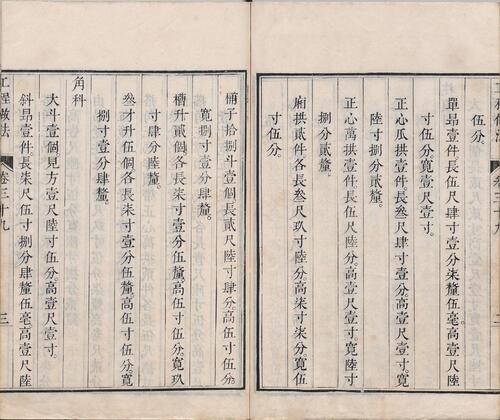 伍分。
單昂壹件長伍尺肆寸壹分柒釐伍毫。高壹尺陸
寸伍分寬壹尺壹寸。
正心瓜拱壹件長叁尺肆寸壹分高壹尺壹寸。寬
陸寸捌分貳釐。
正心萬拱壹件長伍尺陸分。高壹尺壹寸。寬陸寸
捌分貳釐。
廂拱貳件各長叁尺玖寸陸分高柒寸柒分寬伍
寸伍分。
桶子拾捌斗壹個長貳尺陸寸肆分高伍寸伍分。
寬捌寸壹分肆釐。
槽升貳個各長柒寸壹分伍釐。高伍寸伍分。寬玖
寸肆分陸釐。
叁才升伍個各長柒寸壹分伍釐高伍寸伍分。寬
捌寸壹分肆釐。
角科
大斗壹個見方壹尺陸寸伍分高壹尺壹寸。
斜昂壹件長柒尺伍寸捌分肆釐伍毫。高壹尺陸
工程做法 卷三十九 三